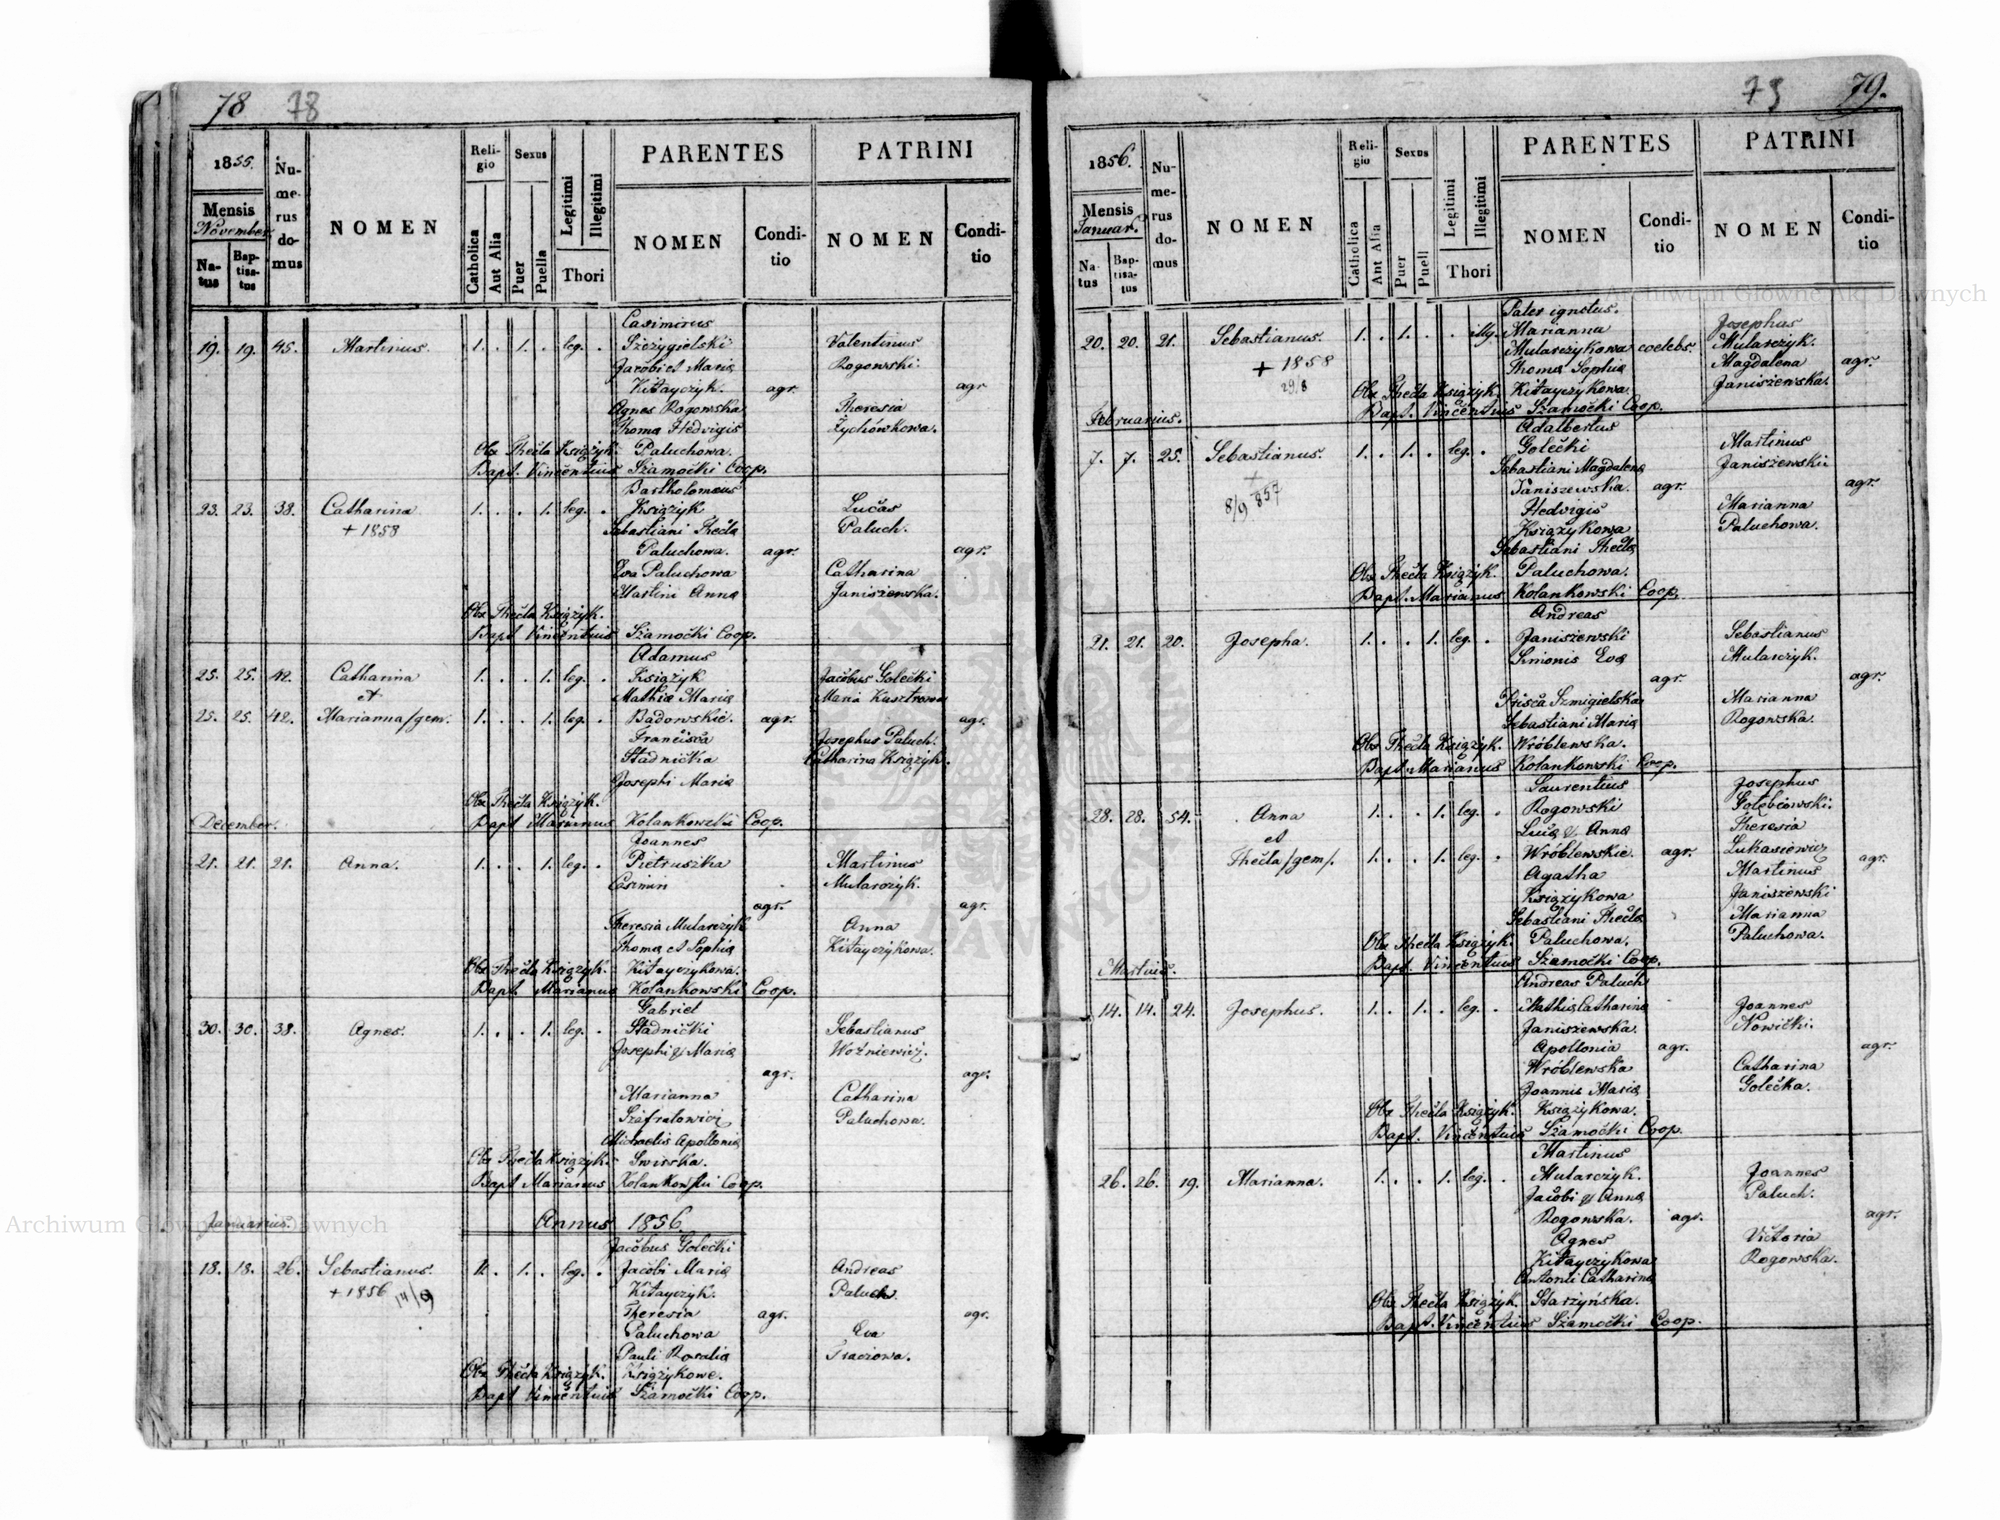 78 78
1855.
Numerus domus
NOMEN
Religio
Sexus
Legitimi
Illegitimi
PARENTES
PATRINI
Mensis
November
Natus
Baptisatus
Catholica
Aut Alia
Puer
Puella
Thori
NOMEN
Conditio
NOMEN
Conditio
Casimirus
19. 19. 45. Martinus. 1. . 1. . leg. . Szczygielski Valentinus
Jacobi et Mariæ Rogowski.
Kitayczyk. agr. agr
Agnes Rogowska Theresia
Thomæ Hedvigis Zychówkowa.
Obs Thecla Książyk. Paluchowa.
Bapt. Vincentius Szamocki Coop.
Bartholomæus
23. 23. 38. Catharina 1. . . 1. leg. . Książyk Lucas
+ 1858 Sebastiani Thecla Paluch.
Paluchowa. agr. agr.
Eva Paluchowa Catharina
Martini Annæ Janiszewska.
Obs Thecla Książyk.
Bapt Vincentius Szamocki Coop.
Adamus
25. 25. 42. Catharina 1. . . 1. leg. . Książyk Jacobus Golecki
et Mathiæ Mariæ Maria Kusztrowa
25. 25. 42. Marianna /gem. 1. . . 1. leg. . Badowskie. agr. agr.
Francisca Josephus Paluch.
Stadnicka Catharina Książyk.
Josephi Mariæ
Obs Thecla Książyk.
December. Bapt Marianus Kolankowski Coop.
Joannes
21. 21. 21. Anna. 1. . . 1. leg. . Pietruszka Martinus
Casimiri Mularczyk.
agr. agr.
Theresia Mularczyk Anna
Thomæ et Sophiæ Kitayczykowa.
Obs Thecla Książyk. Kitayczykowa.
Bapt. Marianus Kolankowski Coop.
Gabriel
30. 30. 38. Agnes. 1. . . 1. leg. . Stadnicki Sebastianus
Josephi & Mariæ Wozniewicz.
agr. agr.
Marianna Catharina
Paluchowa.
Michaelis Apolloniæ
Obs Thecla Książyk. Swirska.
Bapt Marianus Kolankowski Coop.
Januarius. Annus 1856.
Jacobus Golecki
18. 18. 26. Sebastianus. 1. . 1. . leg. . Jacobi Mariæ Andreas
+ 1856 14/9 Kitayczyk. Paluch
Theresia agr. agr.
Paluchowa Eva
Pauli Rosaliæ Traczowa.
Obs Thecla Książyk. Książykowe.
Bapt Vincentius Szamocki Coop.
79 79.
1856.
Numerus domus
NOMEN
Religio
Sexus
Legitimi
Illegitimi
PARENTES
PATRINI
Mensis
Januar.
Natus
Baptisatus
Catholica
Ant Alia
Puer
Puell
Thori
NOMEN
Conditio
NOMEN
Conditio
Pater ignotus. Josephus
20. 20. 21. Sebastianus. 1. . 1. . . illeg. Marianna Mularczyk.
+ 1858 Mularczykowa coelebs. Magdalena agr.
29/8 Thomæ Sophiæ Janiszewska.
Obs Thecla Książyk. Kitayczykowa.
Februarius. Bapt. Vincentius Szamocki Coop.
Adalbertus
7. 7. 25. Sebastianus. 1. . 1. . leg. . Golecki Martinus
+ Sebastiani Magdalenæ Janiszewski
8/9 857 Janiszewska. agr. agr.
Hedvigis Marianna
Książykowa Paluchowa.
Sebastiani Theclæ
Obs Thecla Książyk. Paluchowa.
Bapt. Marianus Kolankowski Coop.
Andreas
21. 21. 20. Josepha. 1. . . 1. leg. . Janiszewski Sebastianus
Simonis Evæ Mularczyk.
agr. agr.
Prisca Szmigielska Marianna
Sebastiani Mariæ Rogowska.
Obs Thecla Książyk. Wróblewska.
Bapt. Marianus Kolankowski Coop.
Laurentius Josephus
28. 28. 54. Anna 1. . . 1. leg. . Rogowski Gołębiowski.
et Lucæ & Annæ Theresia
Thecla /gem/. 1. . . 1. leg. . Wróblewskie. agr. Lukasiewicz agr.
Agatha Martinus
Książykowa Janiszewski
Sebastiani Theclæ Marianna
Obs Thecla Książyk. Paluchowa. Paluchowa.
Martius. Bapt. Vincentius Szamocki Coop.
Andreas Paluch
14. 14. 24. Josephus. 1. . 1. . leg. . Mathiæ Catharinæ Joannes
Janiszewska. Nowicki.
Apollonia agr. agr.
Wróblewska Catharina
Joannis Mariæ Golecka.
Obs Thecla Książyk. Książykowa.
Bapt. Vincentius Szamocki Coop.
Martinus
26. 26. 19. Marianna. 1. . . 1. leg. . Mularczyk. Joannes
Jacobi & Annæ Paluch.
Rogowska. agr. agr.
Agnes Victoria
Kitayczykowa Rogowska.
Antonii Catharinæ
Obs Thecla Książyk. Starzyńska.
Bapt. Vincentius Szamocki Coop.
Archiwum Główne Akt Dawnych
Archiwum Główne Akt Dawnych